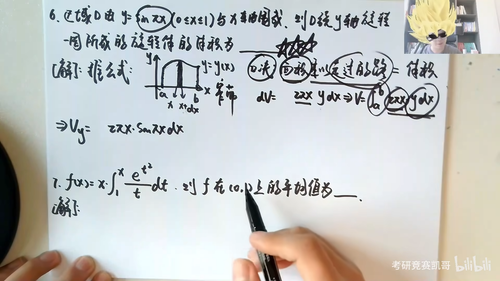 6. 区域D由 y=sinπx (0≤x≤1)与x轴围成,则D绕y轴旋转
一周所成的旋转体的体积为
[解]: 推公式: y y=y(x) a x x+dx b x 面积 乘以走过的路 = 体积
dV= 2πx ydx ⇒ V= ∫ a b 2πx ydx
⇒ Vy= 2πx·sinπxdx
7. f(x)=x·∫₁ˣ e^{t²}/t dt. 则 f 在(0,1)上的平均值为___.
[解]:
考研竞赛凯哥 bilibili